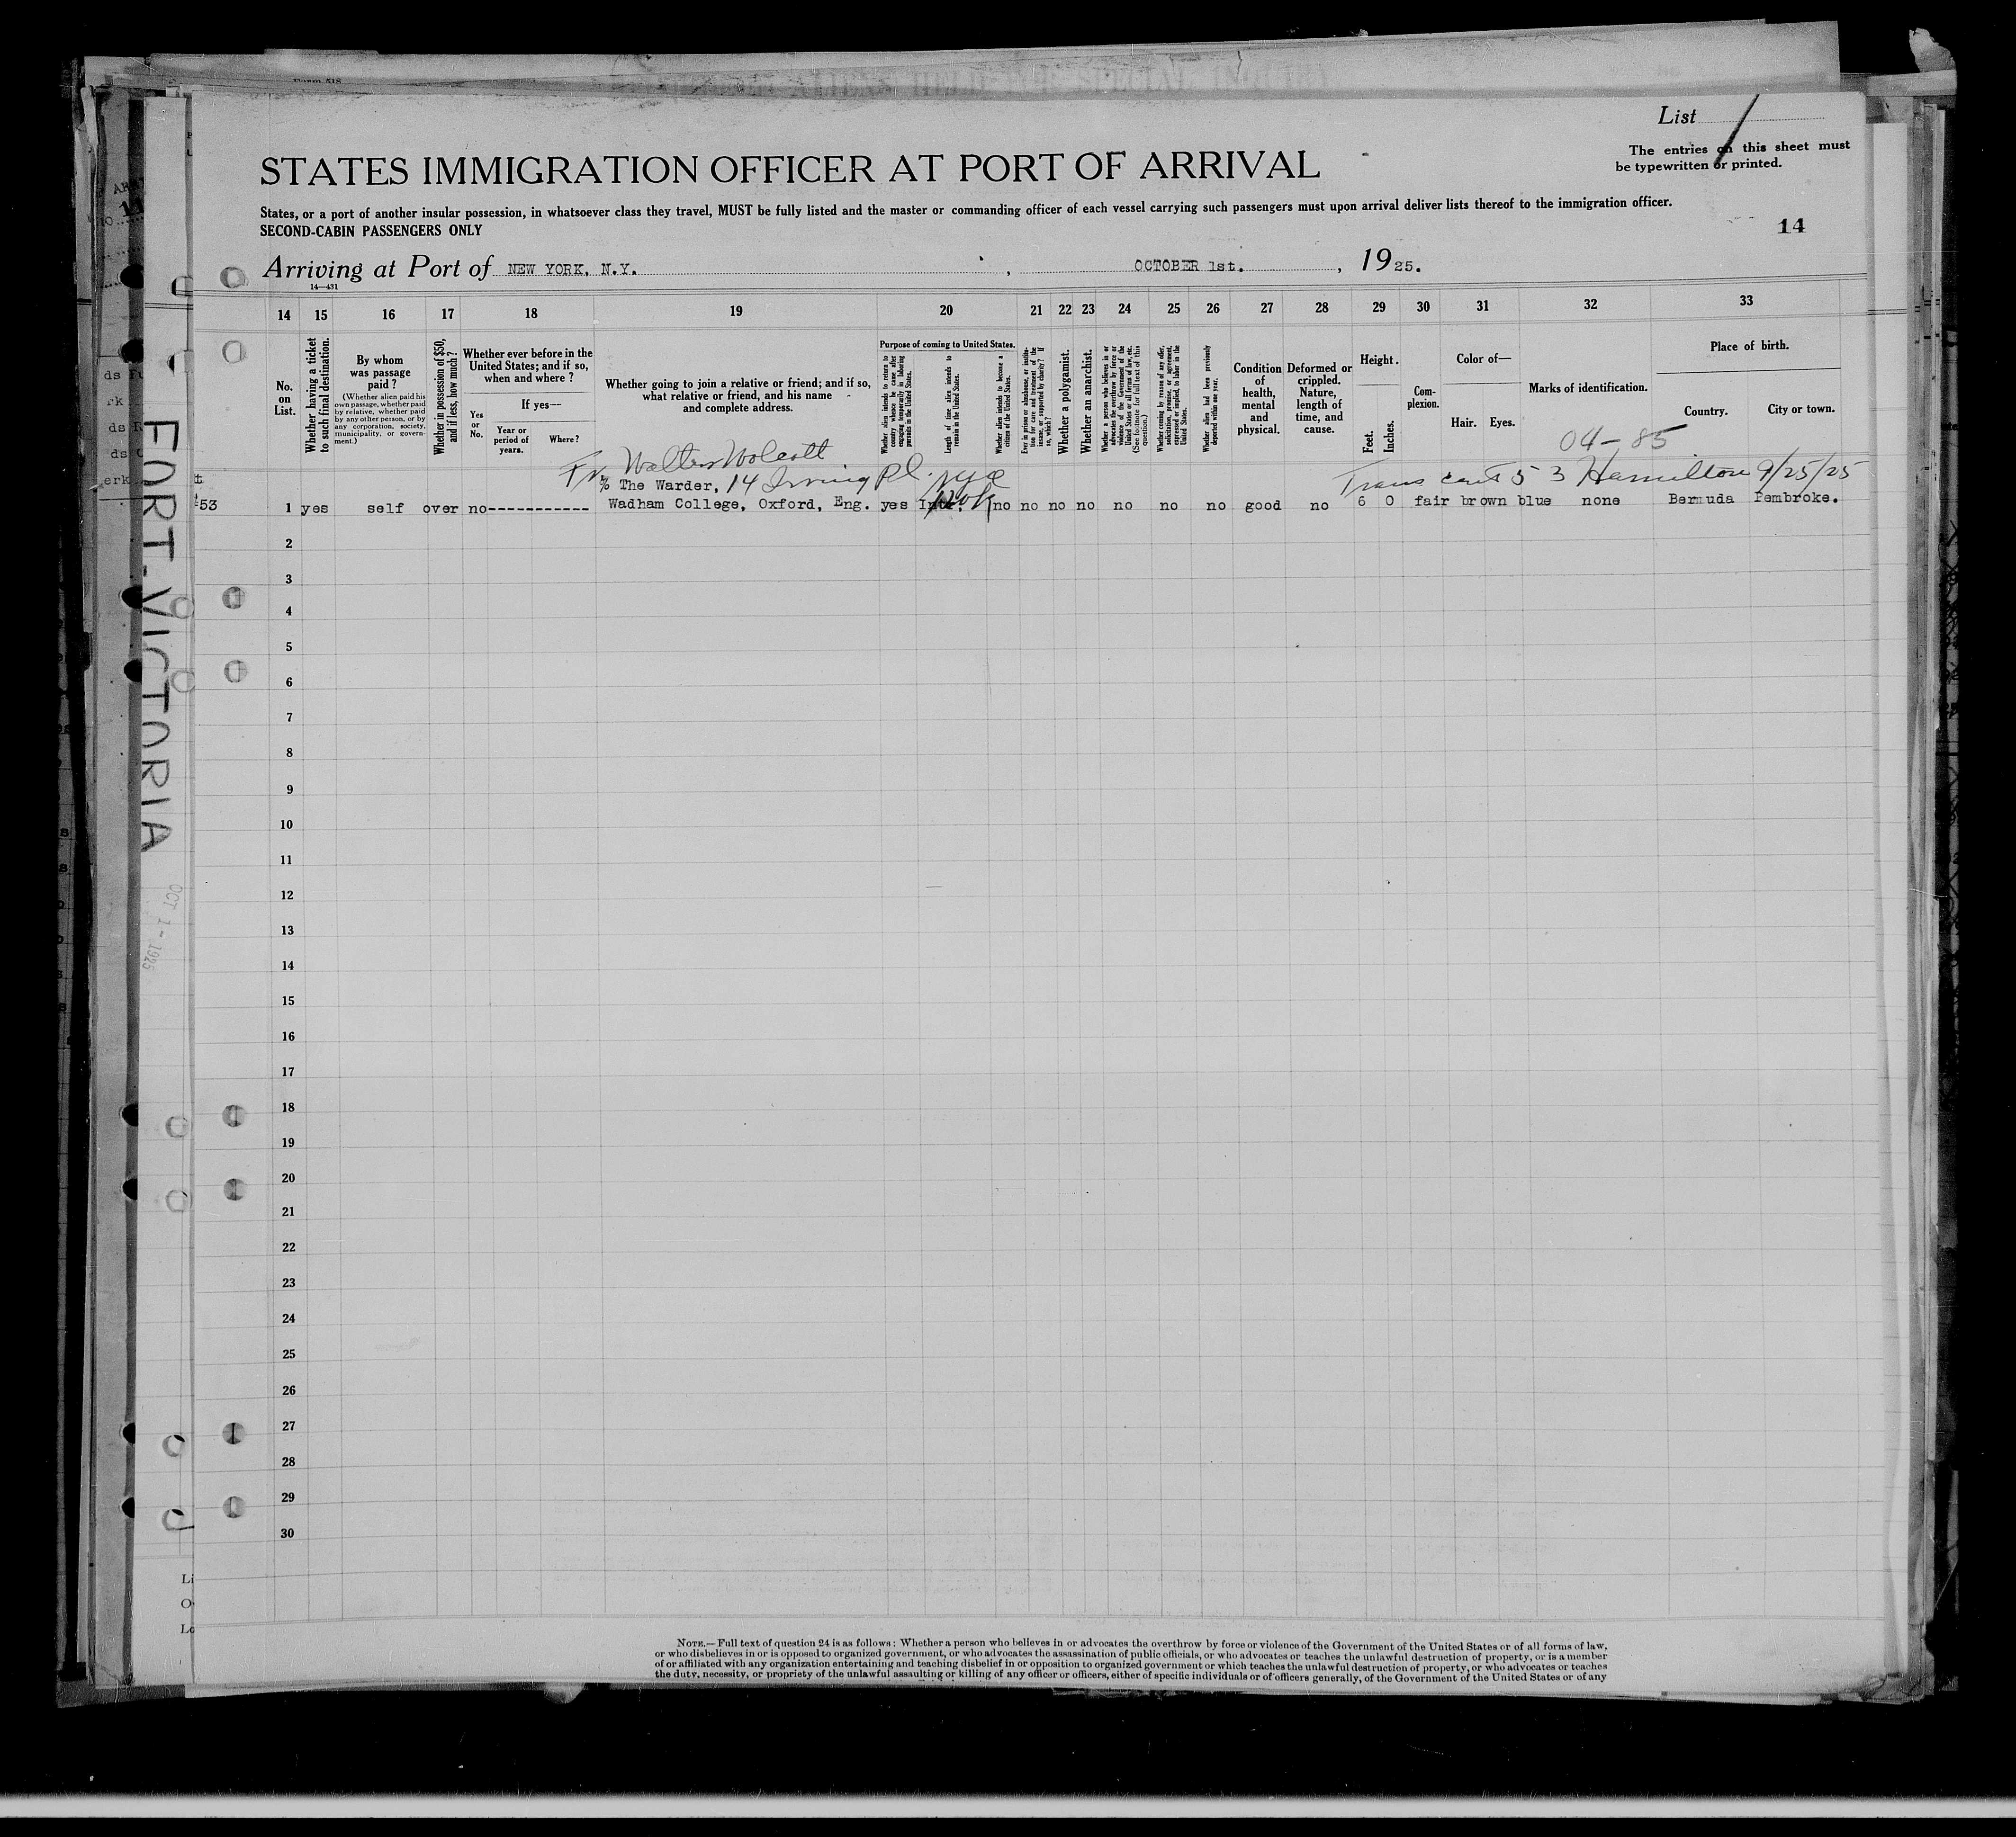 Form 518
List 1
The entries on this sheet must
be typewritten or printed.
STATES IMMIGRATION OFFICER AT PORT OF ARRIVAL
States, or a port of another insular possession, in whatsoever class they travel, MUST be fully listed and the master or commanding officer of each vessel carrying such passengers must upon arrival deliver lists thereof to the immigration officer.
SECOND-CABIN PASSENGERS ONLY
14
Arriving at Port of NEW YORK, N.Y. , OCTOBER 1st. , 1925.
14—431
14 15 16 17 18 19 20 21 22 23 24 25 26 27 28 29 30 31 32 33
No. on List.
Whether having a ticket to such final destination.
By whom was passage paid?
(Whether alien paid his own passage, whether paid by relative, whether paid by any other person, or by any corporation, society, municipality, or government.)
Whether in possession of $50, and if less, how much?
Whether ever before in the United States; and if so, when and where?
Yes or No.
If yes—
Year or period of years.
Where?
Whether going to join a relative or friend; and if so, what relative or friend, and his name and complete address.
Purpose of coming to United States.
Whether alien intends to return to country whence he came after engaging temporarily in laboring pursuits in the United States.
Length of time alien intends to remain in the United States.
Whether alien intends to become a citizen of the United States.
Ever in prison or almshouse, or institution for care and treatment of the insane, or supported by charity? If so, which?
Whether a polygamist.
Whether an anarchist.
Whether a person who believes in or advocates the overthrow by force or violence of the Government of the United States or all forms of law, etc. (See footnote for full text of this question.)
Whether coming by reason of any offer, solicitation, promise, or agreement, expressed or implied, to labor in the United States.
Whether alien had been previously deported within one year.
Condition of health, mental and physical.
Deformed or crippled. Nature, length of time, and cause.
Height.
Feet. Inches.
Complexion.
Color of—
Hair. Eyes.
Marks of identification.
04-85
Place of birth.
Country. City or town.
Fr. Walter Wolcott
% The Warder, 14 Irving Pl. nyc
Trans cert 53 Hamilton 9/25/25
53
1 yes self over no----------- Wadham College, Oxford, Eng. yes no no no no no no no good no 6 0 fair brown blue none Bermuda Pembroke.
2
3
4
5
6
7
8
9
10
11
12
13
14
15
16
17
18
19
20
21
22
23
24
25
26
27
28
29
30
FORT-VICTORIA
OCT 1 - 1925
NOTE.—Full text of question 24 is as follows: Whether a person who believes in or advocates the overthrow by force or violence of the Government of the United States or of all forms of law,
or who disbelieves in or is opposed to organized government, or who advocates the assassination of public officials, or who advocates or teaches the unlawful destruction of property, or is a member
of or affiliated with any organization entertaining and teaching disbelief in or opposition to organized government or which teaches the unlawful destruction of property, or who advocates or teaches
the duty, necessity, or propriety of the unlawful assaulting or killing of any officer or officers, either of specific individuals or of officers generally, of the Government of the United States or of any